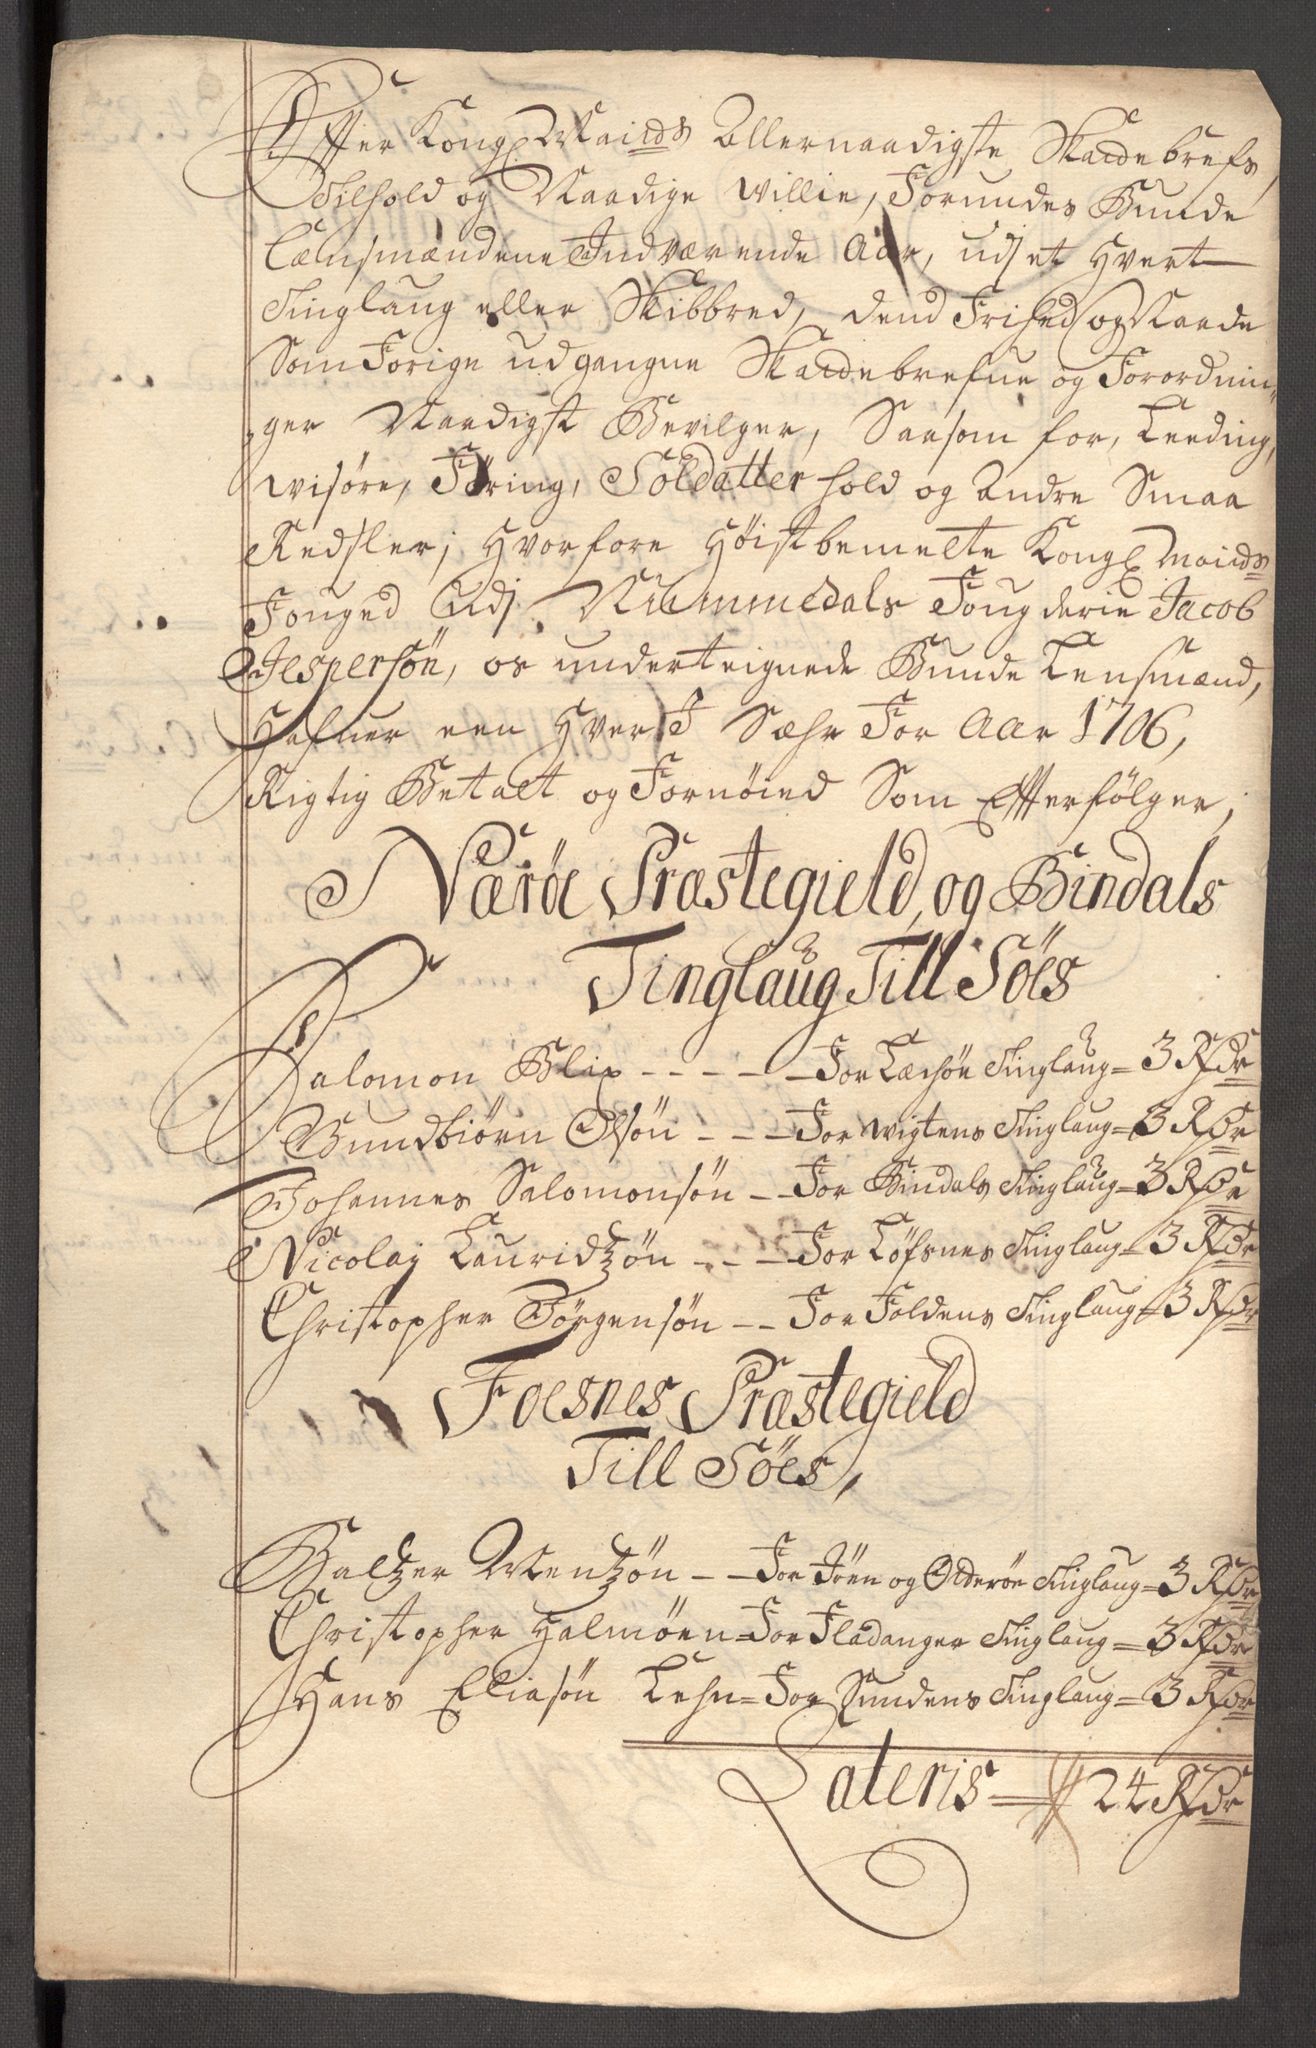 Effter Kongl Maids Allernaadigste Skattebrefs
Tilhold og Naadige Willie, Forundes Bunde
Lænsmændene Indværende Aar, udj et hvert
Tinglaug eller Skibbred, dend Frihed og Naade
Som Forige udgangne Skattebrefue og Forordnin-
ger Naadigst Bevilger, Saasom for, Leeding,
wisøre, Føring, Soldatter hold og Andre Smaa
Redsler; Hvorfore Høistbemelte Kongl Maids
Fouged udj Nummedals Fougderie Jacob
Jespersøn, os underteignede Bunde Lensmænd,
Hafuer een hver J Sæhr For Aar 1706,
Rigtig Betalt og Fornøied Som Effterfølger,
Nærøe Præstegield, og Bindals
Tinglaug Till Søes
Salomon Blix - - - - - For Læchøe Tinglaug = 3 Rdr
Gundbiørn Olsøn - - - For Wigtens Tinglaug = 3 Rdr
Johannes Salomonsøn - - For Bindals Tinglaug = 3 Rdr
Nicolaj Lauridtzøn - - - For Løfsnes Tinglaug = 3 Rdr
Christopher Jørgensøn - - For Foldens Tinglaug = 3 Rdr
Foesnes Præstegield
Till Søes,
Baltzer Mentzøn - - For Jøen og Otterøe Tinglaug = 3 Rdr
Christopher Halmøen = For Fladanger Tinglaug = 3 Rdr
Hans Eliasøn Lehn = For Sundens Tinglaug = 3 Rdr
Lateris = 24 Rdr